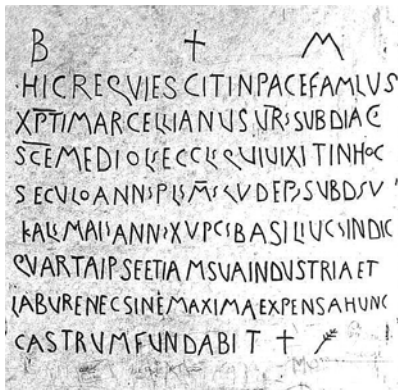 B † M
·HICREQVIESCITINPACEFAMLVS
XPTIMARCELLIANUSURSSUBDIAC
SCEMEDIOLSECCLSQVIVIXITINHOC
SECVLOANNSPLSMSQVDEPSSUBDSV
KALSMAISANNSXVPCSBASILIVCSINDIC
QVARTAIPSEETIAMSVAINDVSTRIAET
LABURENECSINEMAXIMAEXPENSAHUNC
CASTRVMFUNDABIT †